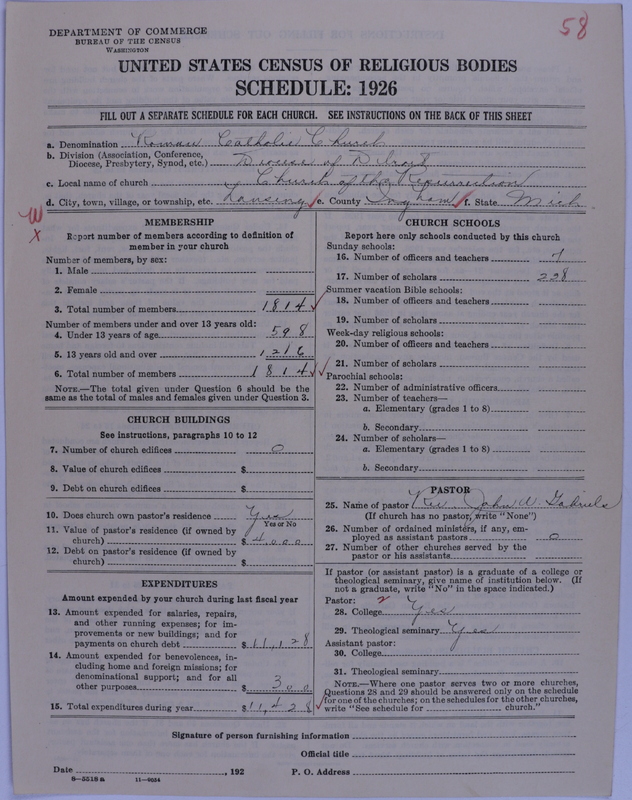 58
DEPARTMENT OF COMMERCE
BUREAU OF THE CENSUS
WASHINGTON
UNITED STATES CENSUS OF RELIGIOUS BODIES
SCHEDULE: 1926
FILL OUT A SEPARATE SCHEDULE FOR EACH CHURCH. SEE INSTRUCTIONS ON THE BACK OF THIS SHEET
a. Denomination Roman Catholic Church
b. Division (Association, Conference,
Diocese, Presbytery, Synod, etc.) Diocese of Detroit
c. Local name of church Church of the Resurrection
d. City, town, village, or township, etc. Lansing e. County Ingham f. State Mich
W
X
MEMBERSHIP
Report number of members according to definition of
member in your church
Number of members, by sex:
1. Male
2. Female
3. Total number of members 1814
Number of members under and over 13 years old:
4. Under 13 years of age 598
5. 13 years old and over 1216
6. Total number of members 1814
NOTE.—The total given under Question 6 should be the
same as the total of males and females given under Question 3.
CHURCH BUILDINGS
See instructions, paragraphs 10 to 12
7. Number of church edifices 0
8. Value of church edifices $
9. Debt on church edifices $
10. Does church own pastor's residence Yes
Yes or No
11. Value of pastor's residence (if owned by
church) $ 4,000
12. Debt on pastor's residence (if owned by
church) $
EXPENDITURES
Amount expended by your church during last fiscal year
13. Amount expended for salaries, repairs,
and other running expenses; for im-
provements or new buildings; and for
payments on church debt $ 11,128
14. Amount expended for benevolences, in-
cluding home and foreign missions; for
denominational support; and for all
other purposes $ 300
15. Total expenditures during year $ 11,428
CHURCH SCHOOLS
Report here only schools conducted by this church
Sunday schools:
16. Number of officers and teachers 7
17. Number of scholars 228
Summer vacation Bible schools:
18. Number of officers and teachers
19. Number of scholars
Week-day religious schools:
20. Number of officers and teachers
21. Number of scholars
Parochial schools:
22. Number of administrative officers
23. Number of teachers—
a. Elementary (grades 1 to 8)
b. Secondary
24. Number of scholars—
a. Elementary (grades 1 to 8)
b. Secondary
PASTOR
25. Name of pastor Rev. John W. Gabriels
(If church has no pastor, write "None")
26. Number of ordained ministers, if any, em-
ployed as assistant pastors 0
27. Number of other churches served by the
pastor or his assistants
If pastor (or assistant pastor) is a graduate of a college or
theological seminary, give name of institution below. (If
not a graduate, write "No" in the space indicated.)
Pastor: 2
28. College Yes
29. Theological seminary Yes
Assistant pastor:
30. College
31. Theological seminary
NOTE.—Where one pastor serves two or more churches,
Questions 28 and 29 should be answered only on the schedule
for one of the churches; on the schedules for the other churches,
write "See schedule for church."
Signature of person furnishing information
Official title
Date , 192 P. O. Address
8—5518 a 11—8054